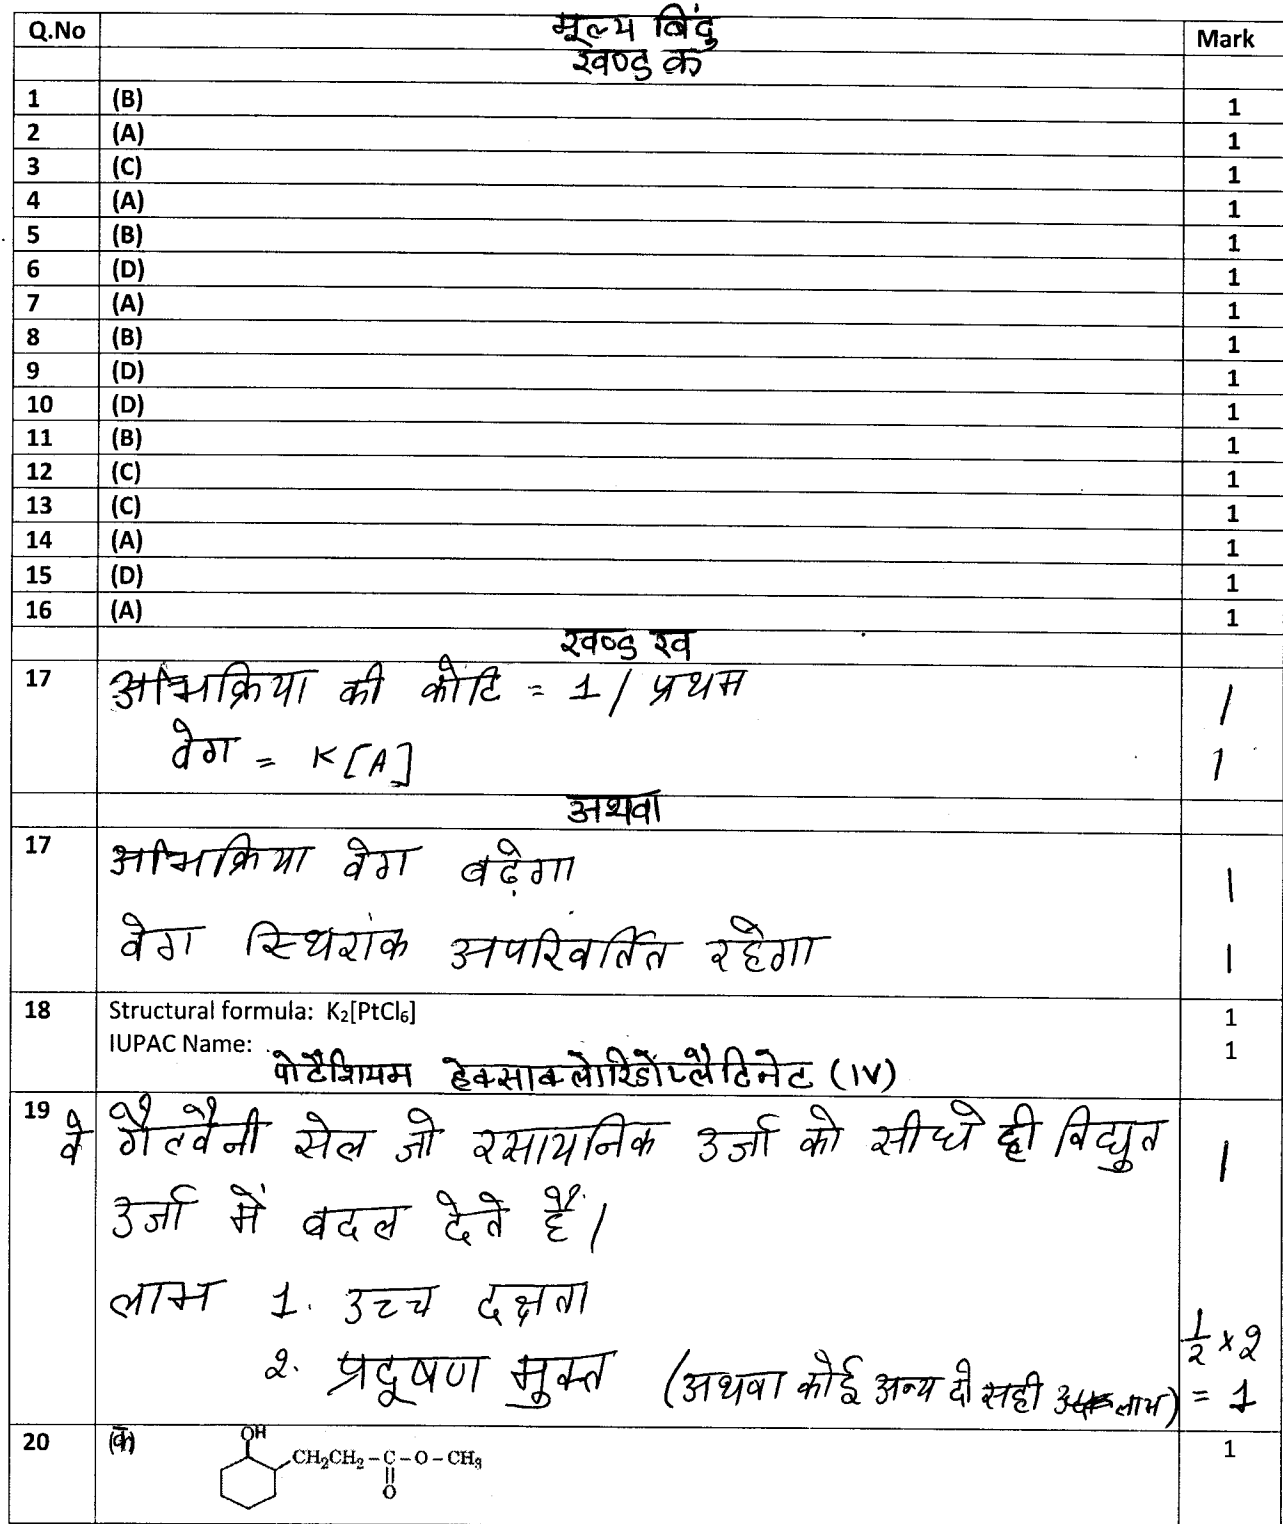 Q.No मूल्य बिंदु Mark
खण्ड क
1 (B) 1
2 (A) 1
3 (C) 1
4 (A) 1
5 (B) 1
6 (D) 1
7 (A) 1
8 (B) 1
9 (D) 1
10 (D) 1
11 (B) 1
12 (C) 1
13 (C) 1
14 (A) 1
15 (D) 1
16 (A) 1
खण्ड ख
17 अभिक्रिया की कोटि = 1 / प्रथम 1
वेग = K[A] 1
अथवा
17 अभिक्रिया वेग बढ़ेगा 1
वेग स्थिरांक अपरिवर्तित रहेगा 1
18 Structural formula: K₂[PtCl₆] 1
IUPAC Name: 1
पोटैशियम हेक्साक्लोरिडोप्लैटिनेट (IV)
19 वे गैल्वैनी सेल जो रसायनिक उर्जा को सीधे ही विद्युत 1
उर्जा में बदल देते हैं।
लाभ 1. उच्च दक्षता
2. प्रदूषण मुक्त (अथवा कोई अन्य दो सही लाभ) ½ × 2 = 1
20 (क) 1
OH
CH₂CH₂–C–O–CH₃
O